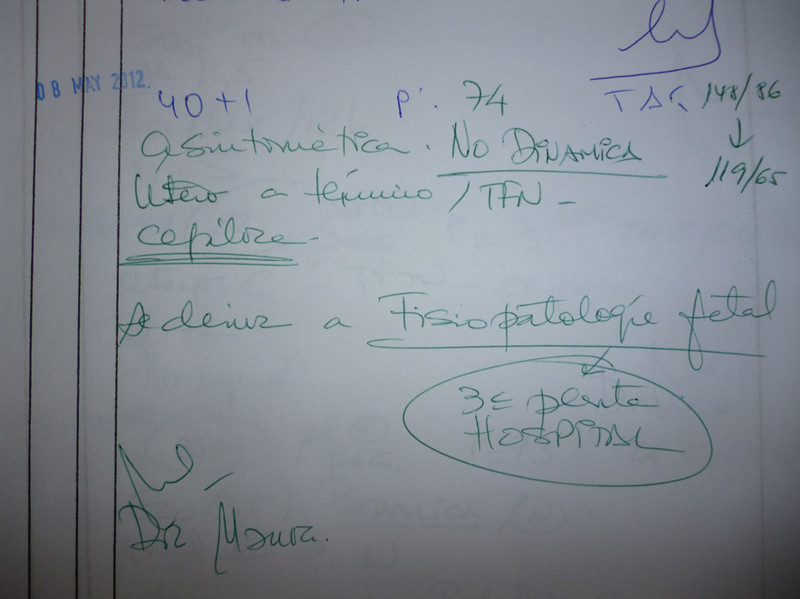 08 MAY 2012.
40+1 p: 74 TAS 148/86
↓ 119/65
Asintomática. NO DINAMICA
Utero a término / TFN -
cefálica -
Se deriva a Fisiopatología fetal
3ª planta
HOSPITAL
Dra Maura.